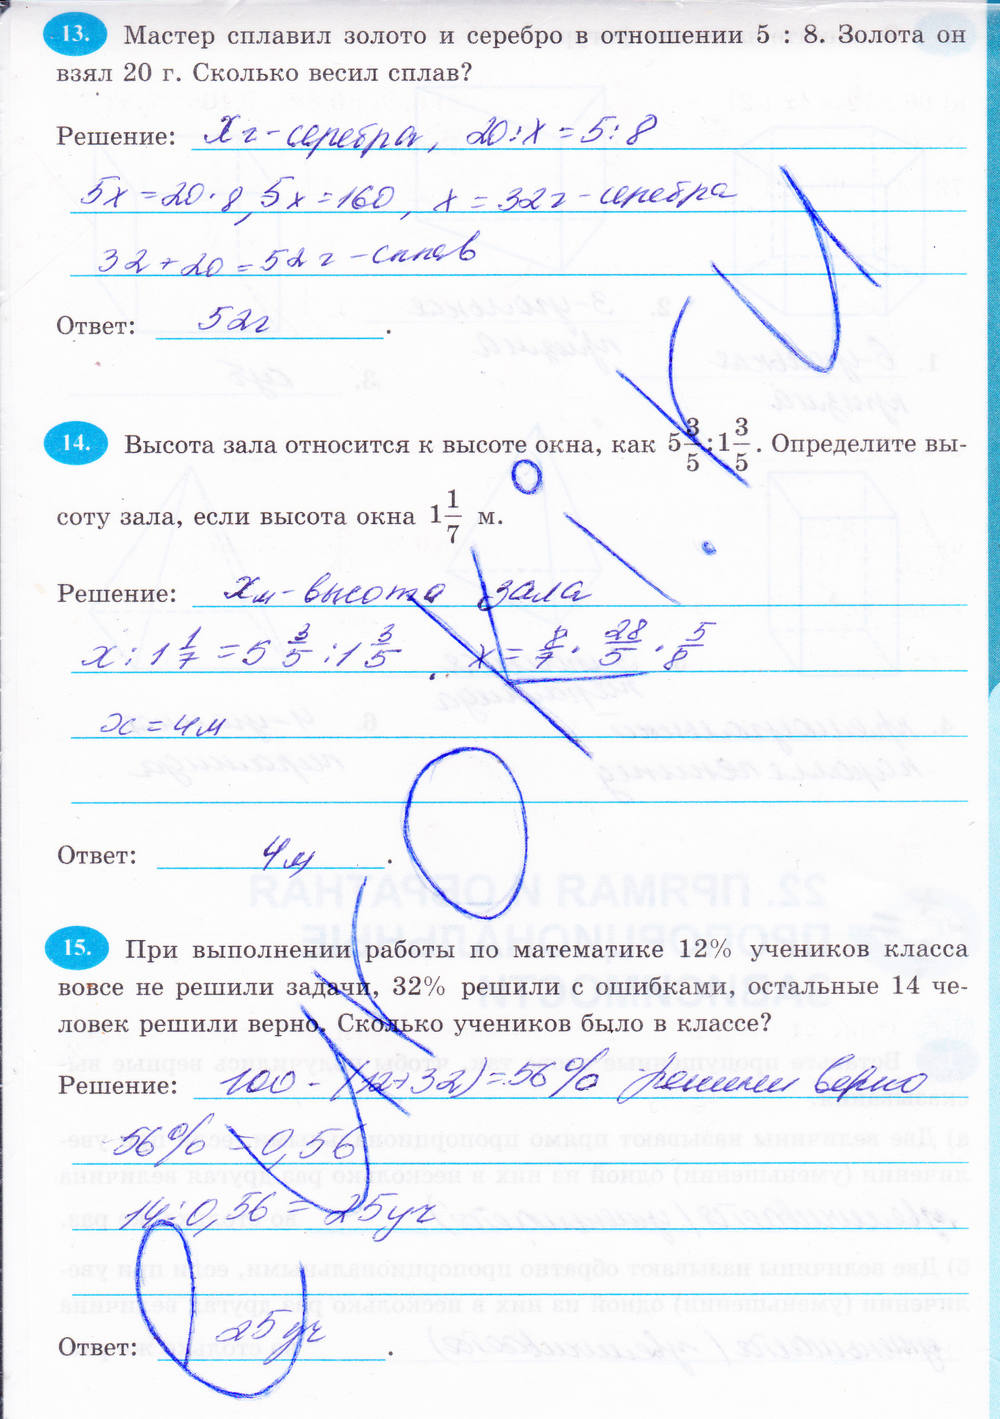 13. Мастер сплавил золото и серебро в отношении 5 : 8. Золота он
взял 20 г. Сколько весил сплав?
Решение: Xг - серебра, 20 : x = 5 : 8
5x = 20 · 8, 5x = 160, x = 32 г - серебра
32 + 20 = 52 г - сплав
Ответ: 52г.
14. Высота зала относится к высоте окна, как 5 3/5 : 1 3/5. Определите вы-
соту зала, если высота окна 1 1/7 м.
Решение: Xм - высота зала
x : 1 1/7 = 5 3/5 : 1 3/5 x = 8/7 · 28/5 · 5/8
x = 4м
Ответ: 4м.
15. При выполнении работы по математике 12% учеников класса
вовсе не решили задачи, 32% решили с ошибками, остальные 14 че-
ловек решили верно. Сколько учеников было в классе?
Решение: 100 - (12+32) = 56% решили верно
56% = 0,56
14 : 0,56 = 25уч
Ответ: 25уч.
22. ПРЯМАЯ И ОБРАТНАЯ
ПРОПОРЦИОНАЛЬНЫЕ
ЗАВИСИМОСТИ